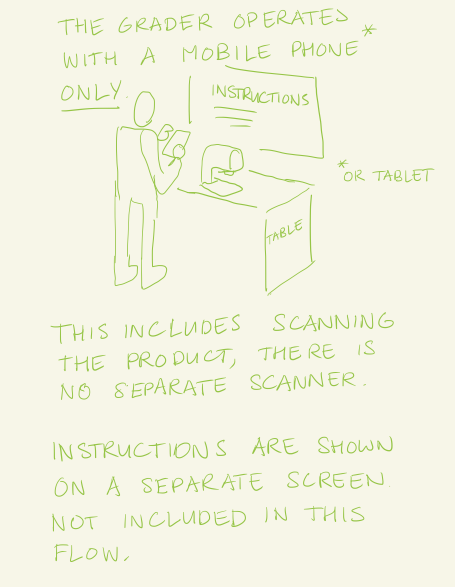 THE GRADER OPERATES
WITH A MOBILE PHONE*
ONLY.
INSTRUCTIONS
*OR TABLET
TABLE
THIS INCLUDES SCANNING
THE PRODUCT, THERE IS
NO SEPARATE SCANNER.
INSTRUCTIONS ARE SHOWN
ON A SEPARATE SCREEN
NOT INCLUDED IN THIS
FLOW.